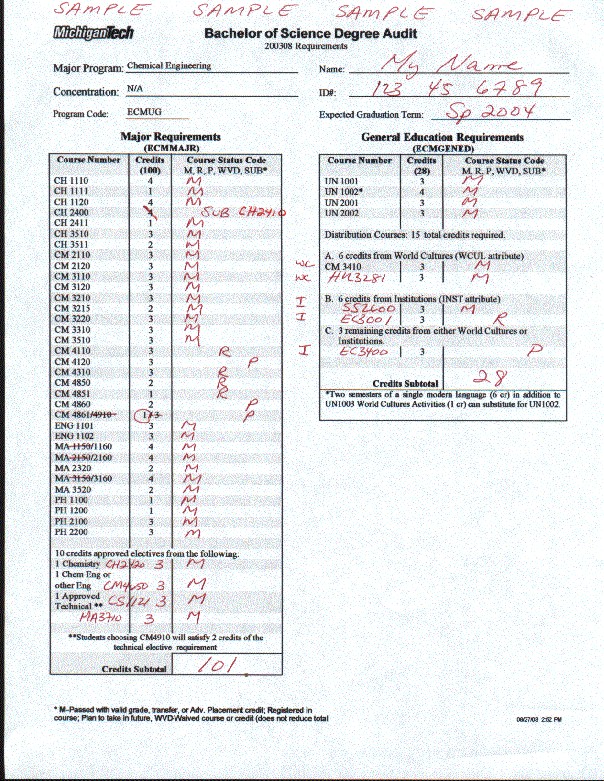 SAMPLE SAMPLE SAMPLE SAMPLE
MichiganTech
Bachelor of Science Degree Audit
200308 Requirements
Major Program: Chemical Engineering
Name: My Name
Concentration: N/A
ID#: 123 45 6789
Program Code: ECMUG
Expected Graduation Term: Sp 2004
Major Requirements
(ECMMAJR)
Course Number Credits (100) Course Status Code M, R, P, WVD, SUB*
CH 1110 4 M
CH 1111 1 M
CH 1120 4 M
CH 2400 4 SUB CH2410
CH 2411 1 M
CH 3510 3 M
CH 3511 2 M
CM 2110 3 M
CM 2120 3 M
CM 3110 3 M
CM 3120 3 M
CM 3210 3 M
CM 3215 2 M
CM 3220 3 M
CM 3310 3 M
CM 3510 3 M
CM 4110 3 R
CM 4120 3 P
CM 4310 3 R
CM 4850 2 R
CM 4851 1 R
CM 4860 2 P
CM 4861/4910 1/3 P
ENG 1101 3 M
ENG 1102 3 M
MA 1150/1160 4 M
MA 2150/2160 4 M
MA 2320 2 M
MA 3150/3160 4 M
MA 3520 2 M
PH 1100 1 M
PH 1200 1 M
PH 2100 3 M
PH 2200 3 M
10 credits approved electives from the following.
1 Chemistry CH2420 3 M
1 Chem Eng or
other Eng 3 M
1 Approved CS1121 3 M
Technical **
MA3710 3 M
**Students choosing CM4910 will satisfy 2 credits of the
technical elective requirement
Credits Subtotal 101
General Education Requirements
(ECMGENED)
Course Number Credits (28) Course Status Code M, R, P, WVD, SUB*
UN 1001 3 M
UN 1002* 4 M
UN 2001 3 M
UN 2002 3 M
Distribution Courses: 15 total credits required.
A. 6 credits from World Cultures (WCUL attribute)
WC CM 3410 3 M
WC HU3281 3 M
B. 6 credits from Institutions (INST attribute)
I SS2600 3 M
I EC3001 3 R
C. 3 remaining credits from either World Cultures or
Institutions.
I EC3400 3 P
Credits Subtotal 28
*Two semesters of a single modern language (6 cr) in addition to
UN1003 World Cultures Activities (1 cr) can substitute for UN1002.
* M-Passed with valid grade, transfer, or Adv. Placement credit; Registered in
course; Plan to take in future, WVD-Waived course or credit (does not reduce total
08/27/03 2:52 PM